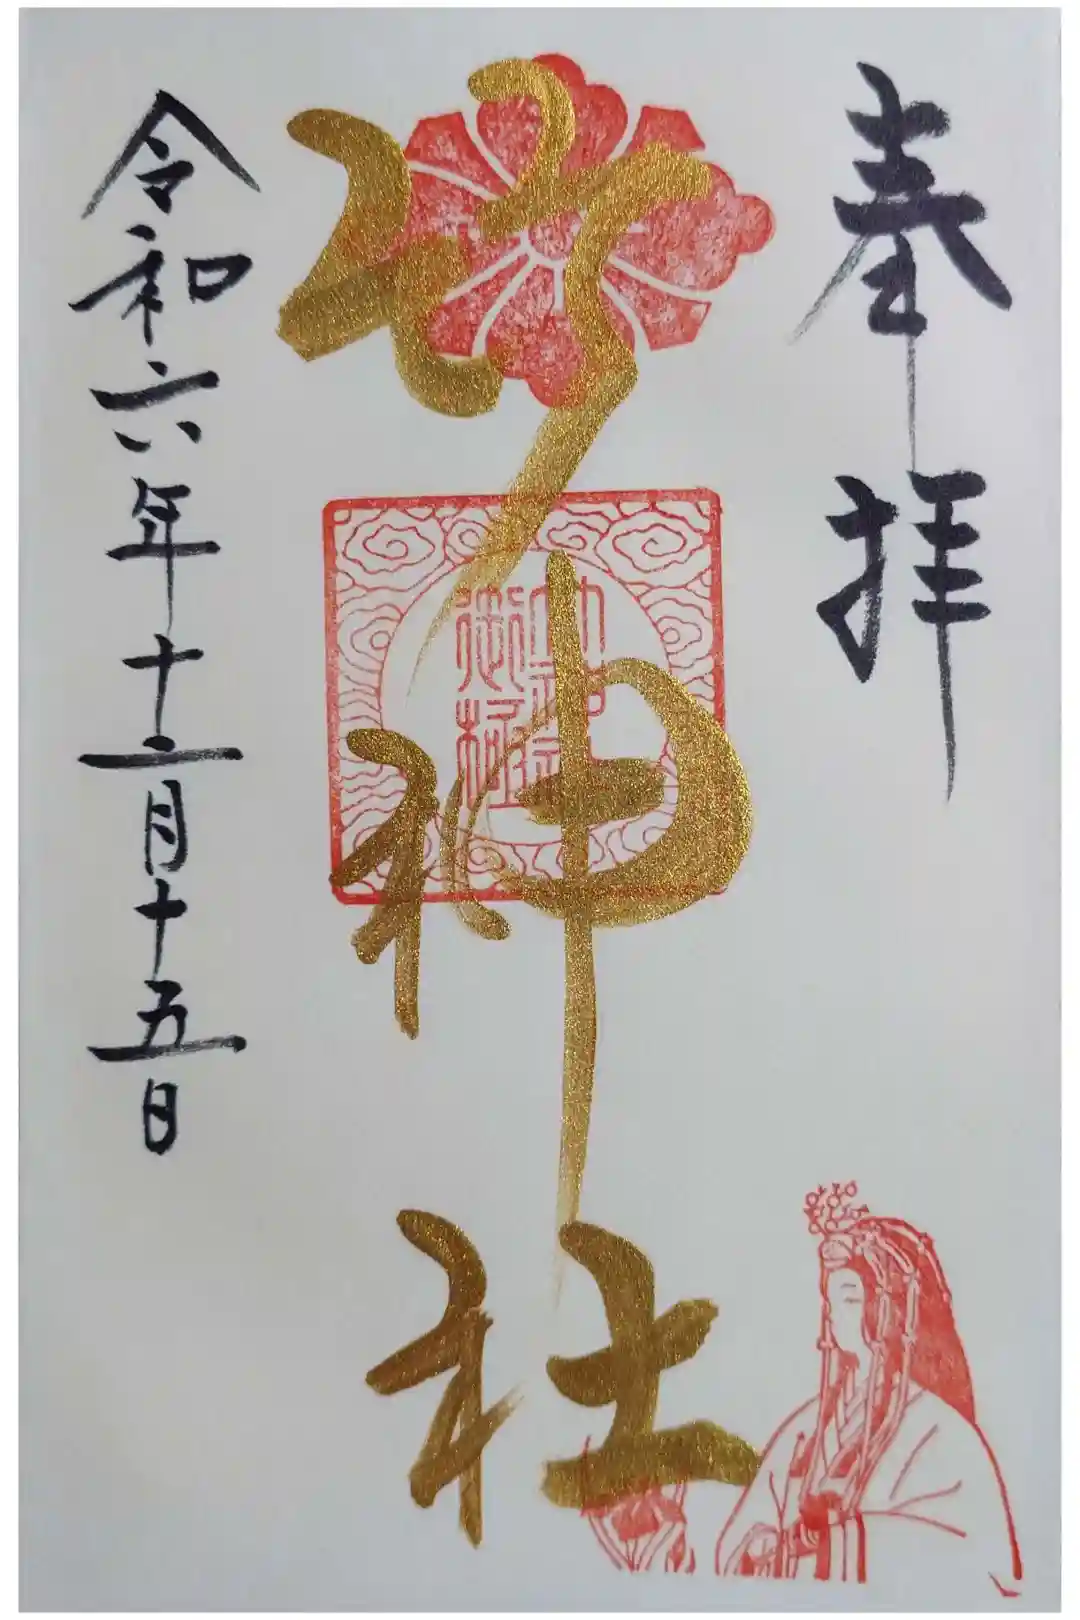 奉拝
竹神社
令和六年十二月十五日